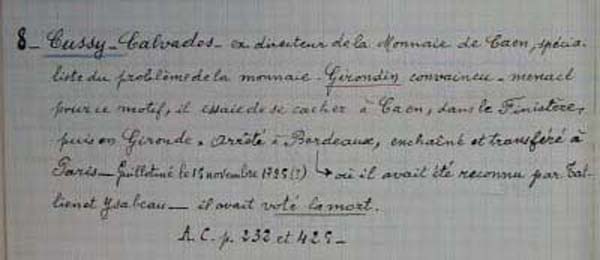 8_ Cussy_Calvados_ ex directeur de la Monnaie de Caen, spécia-
liste du problème de la monnaie. Girondin convaincu - menacé
pour ce motif, il essaie de se cacher à Caen, dans le Finistère,
puis en Gironde. Arrêté à Bordeaux, enchaîné et transféré à
Paris_ Guillotiné le 15 novembre 1795(?) ↳ où il avait été reconnu par Tal-
lien et Ysabeau_ il avait voté la mort.
A.C. p. 232 et 425_